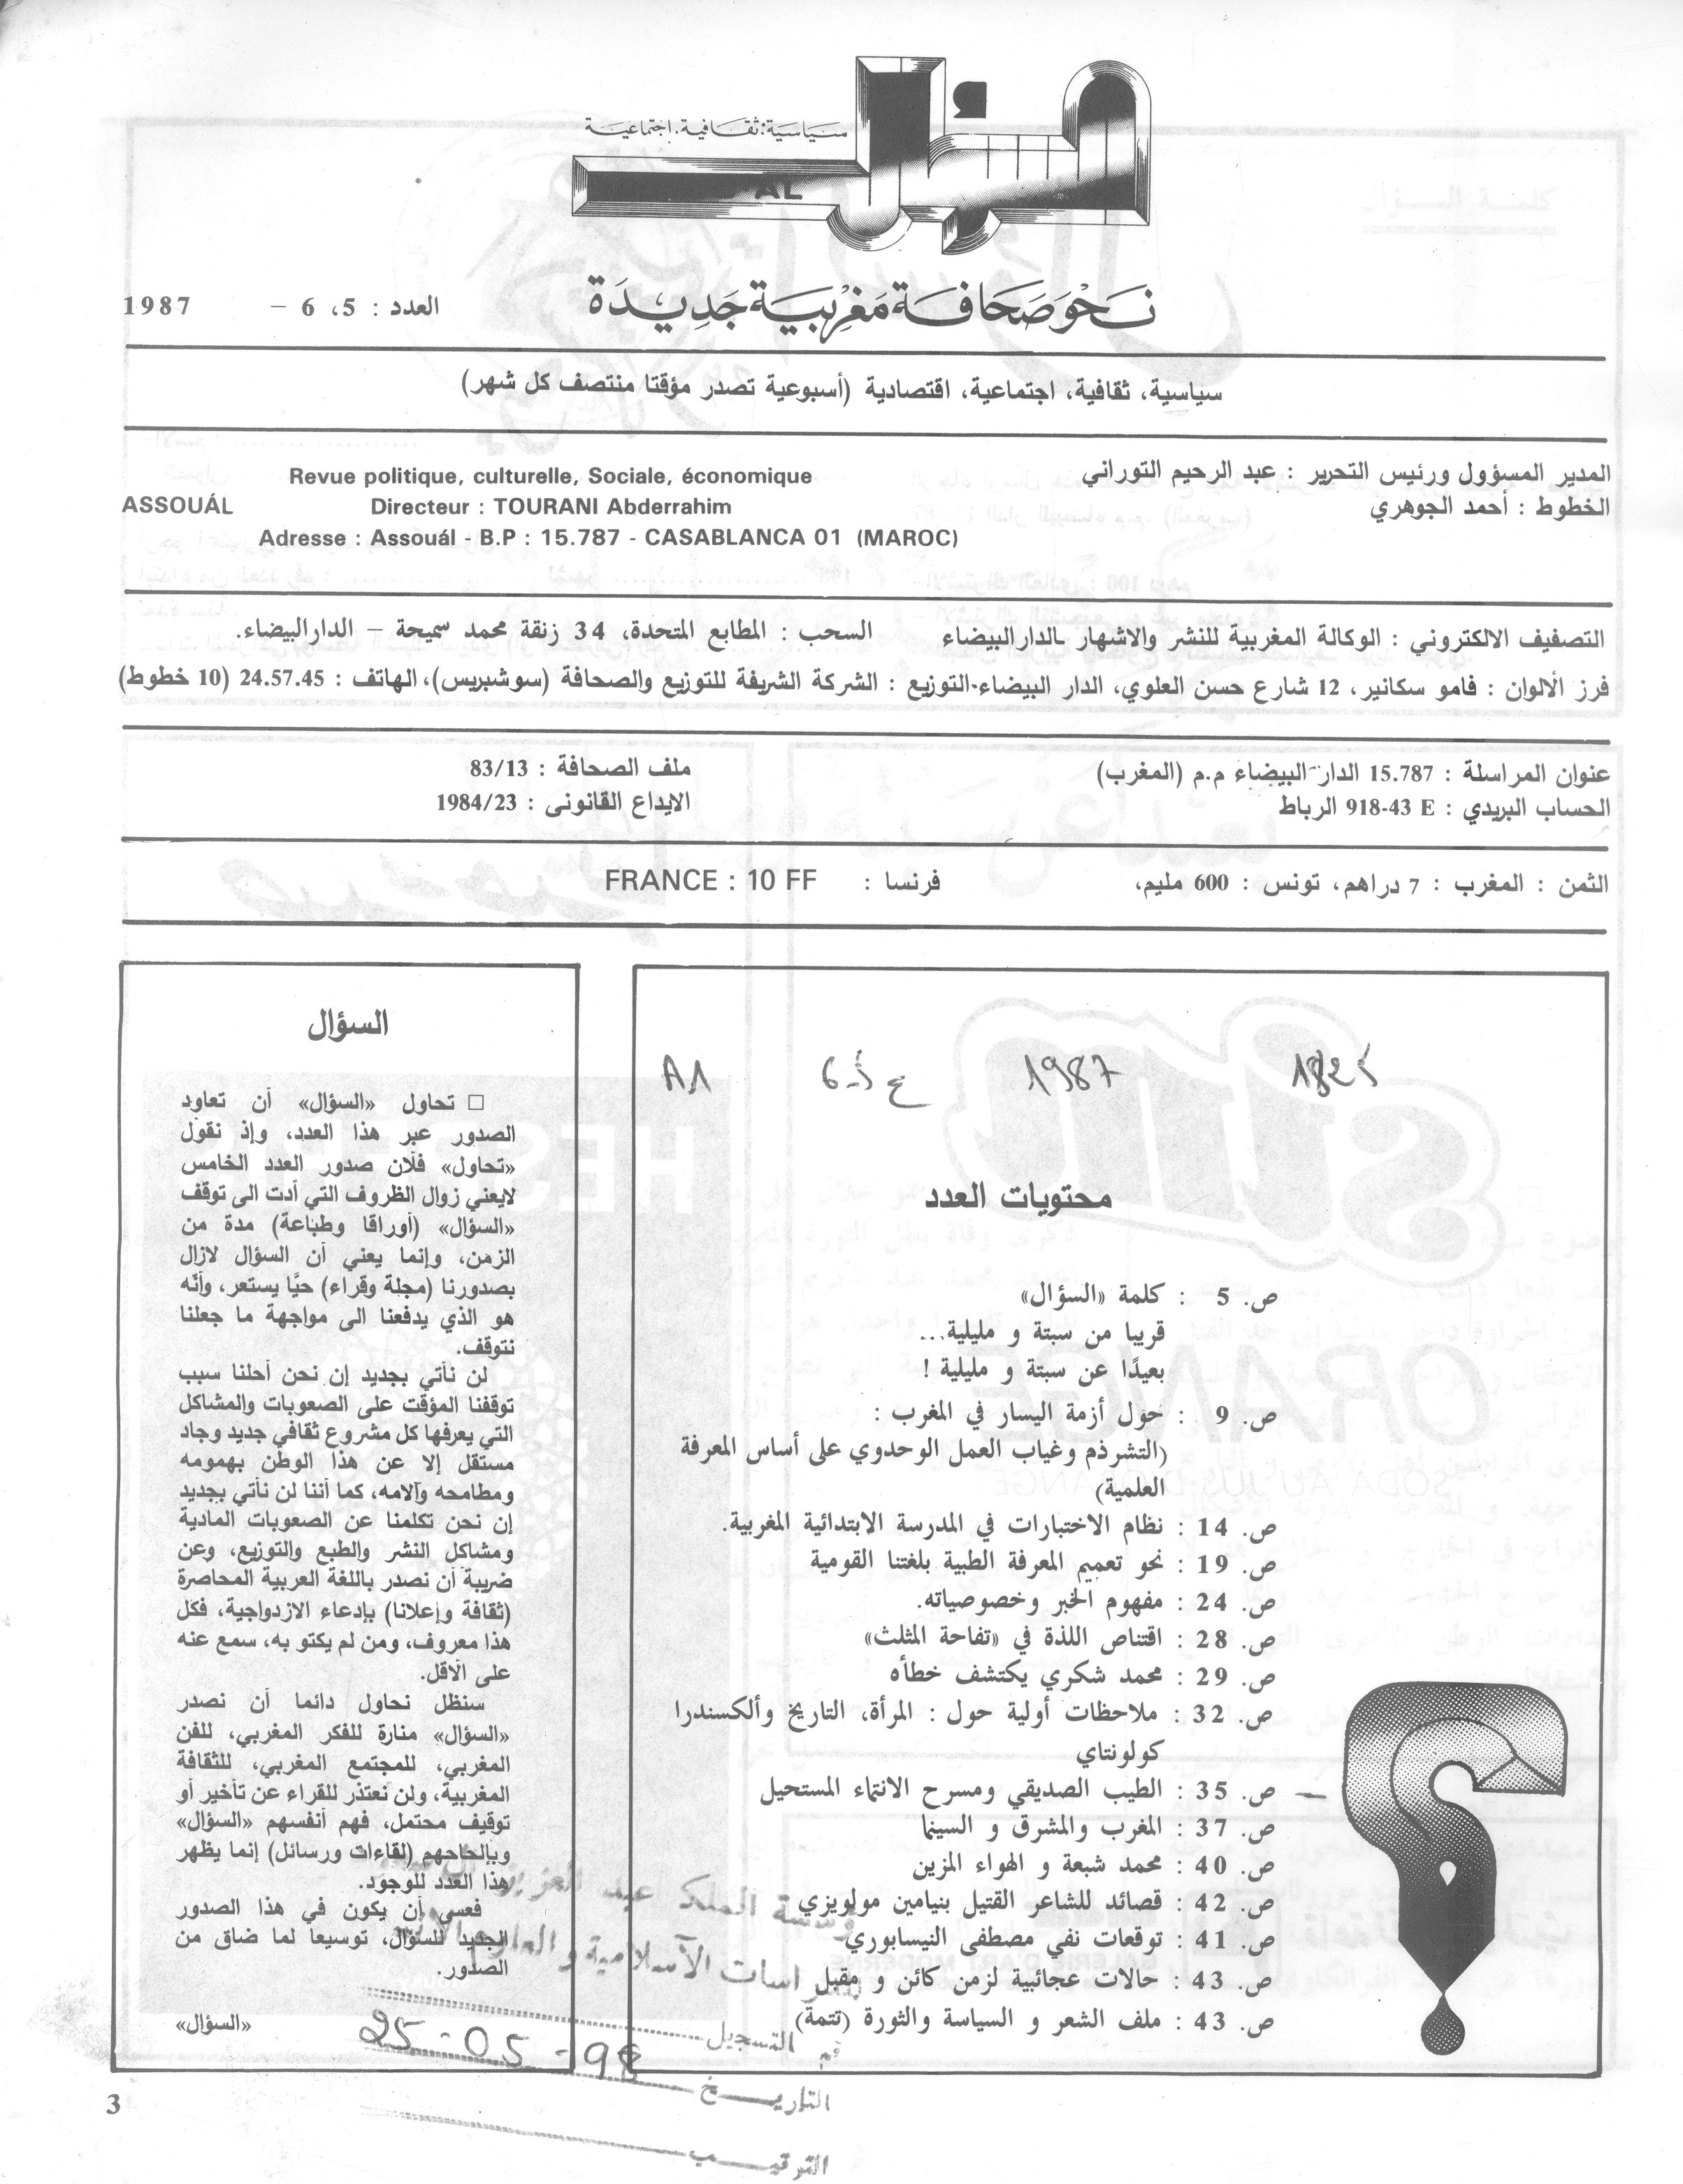 سياسية. ثقافية. اجتماعية
السؤال
AL
نحو صحافة مغربية جديدة
العدد : 5، 6 – 1987
سياسية، ثقافية، اجتماعية، اقتصادية (أسبوعية تصدر مؤقتا منتصف كل شهر)
المدير المسؤول ورئيس التحرير : عبد الرحيم التوراني
الخطوط : أحمد الجوهري
Revue politique, culturelle, Sociale, économique
ASSOUÁL Directeur : TOURANI Abderrahim
Adresse : Assouál - B.P : 15.787 - CASABLANCA 01 (MAROC)
التصفيف الالكتروني : الوكالة المغربية للنشر والاشهار ـالدارالبيضاء السحب : المطابع المتحدة، 34 زنقة محمد سميحة – الدارالبيضاء.
فرز الألوان : فامو سكانير، 12 شارع حسن العلوي، الدار البيضاء.التوزيع : الشركة الشريفة للتوزيع والصحافة (سوشبريس)، الهاتف : 24.57.45 (10 خطوط)
عنوان المراسلة : 15.787 الدار البيضاء م.م (المغرب)
الحساب البريدي : 918-43 E الرباط
ملف الصحافة : 83/13
الايداع القانونى : 1984/23
الثمن : المغرب : 7 دراهم، تونس : 600 مليم، فرنسا : FRANCE : 10 FF
1987
A1
محتويات العدد
ص. 5 : كلمة «السؤال»
قريبا من سبتة و مليلية...
بعيدًا عن سبتة و مليلية !
ص. 9 : حول أزمة اليسار في المغرب :
(التشرذم وغياب العمل الوحدوي على أساس المعرفة
العلمية)
ص. 14 : نظام الاختبارات في المدرسة الابتدائية المغربية.
ص. 19 : نحو تعميم المعرفة الطبية بلغتنا القومية
ص. 24 : مفهوم الخبر وخصوصياته.
ص. 28 : اقتناص اللذة في «تفاحة المثلث»
ص. 29 : محمد شكري يكتشف خطأه
ص. 32 : ملاحظات أولية حول : المرأة، التاريخ وألكسندرا
كولونتاي
ص. 35 : الطيب الصديقي ومسرح الانتماء المستحيل
ص. 37 : المغرب والمشرق و السينما
ص. 40 : محمد شبعة و الهواء المزين
ص. 42 : قصائد للشاعر القتيل بنيامين مولويزي
ص. 41 : توقعات نفي مصطفى النيسابوري
ص. 43 : حالات عجائبية لزمن كائن و مقبل
ص. 43 : ملف الشعر و السياسة والثورة (تتمة)
السؤال
□ تحاول «السؤال» أن تعاود
الصدور عبر هذا العدد، وإذ نقول
«تحاول» فلأن صدور العدد الخامس
لايعني زوال الظروف التي أدت الى توقف
«السؤال» (أوراقا وطباعة) مدة من
الزمن، وإنما يعني أن السؤال لازال
بصدورنا (مجلة وقراء) حيًا يستعر، وأنه
هو الذي يدفعنا الى مواجهة ما جعلنا
نتوقف.
لن نأتي بجديد إن نحن أحلنا سبب
توقفنا المؤقت على الصعوبات والمشاكل
التي يعرفها كل مشروع ثقافي جديد وجاد
مستقل إلا عن هذا الوطن بهمومه
ومطامحه وآلامه، كما أننا لن نأتي بجديد
إن نحن تكلمنا عن الصعوبات المادية
ومشاكل النشر والطبع والتوزيع، وعن
ضريبة أن نصدر باللغة العربية المحاصرة
(ثقافة وإعلانا) بإدعاء الازدواجية، فكل
هذا معروف، ومن لم يكتو به، سمع عنه
على الأقل.
سنظل نحاول دائما أن نصدر
«السؤال» منارة للفكر المغربي، للفن
المغربي، للمجتمع المغربي، للثقافة
المغربية، ولن نعتذر للقراء عن تأخير أو
توقيف محتمل، فهم أنفسهم «السؤال»
وبإلحاحهم (لقاءات ورسائل) إنما يظهر
هذا العدد للوجود.
فعسى أن يكون في هذا الصدور
الجديد للسؤال، توسيعا لما ضاق من
الصدور.
«السؤال»
مؤسسة الملك عبد العزيز
للدراسات الآسلامية و العلوم
رقم التسجيل
25-05-98
التاريـــخ
الترقيـــب
3